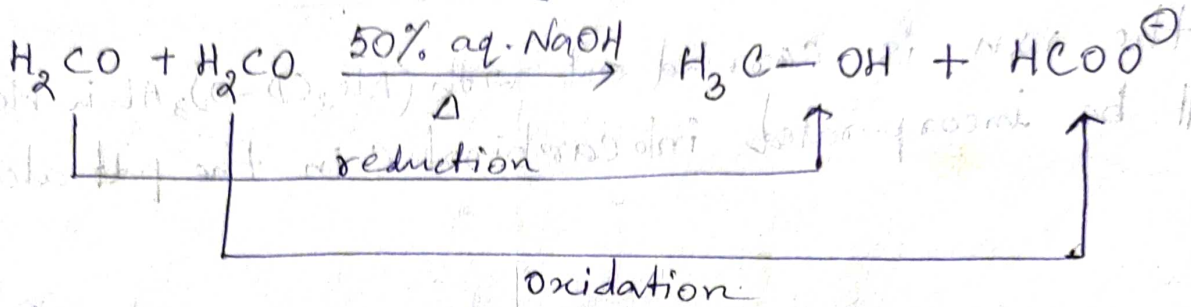 H₂CO + H₂CO 50% aq. NaOH H₃C – OH + HCOO⊖
Δ
reduction
oxidation